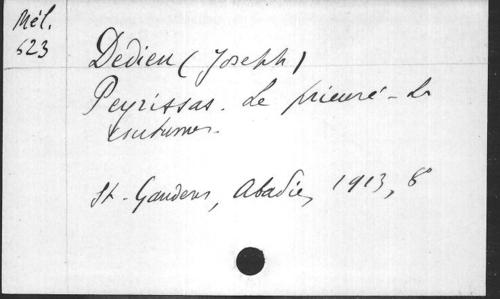 Mél.
623
Dedieu (Joseph)
Peyrissas. Le prieuré - Les
coutumes.
St-Gaudens, Abadie, 1913, 8°